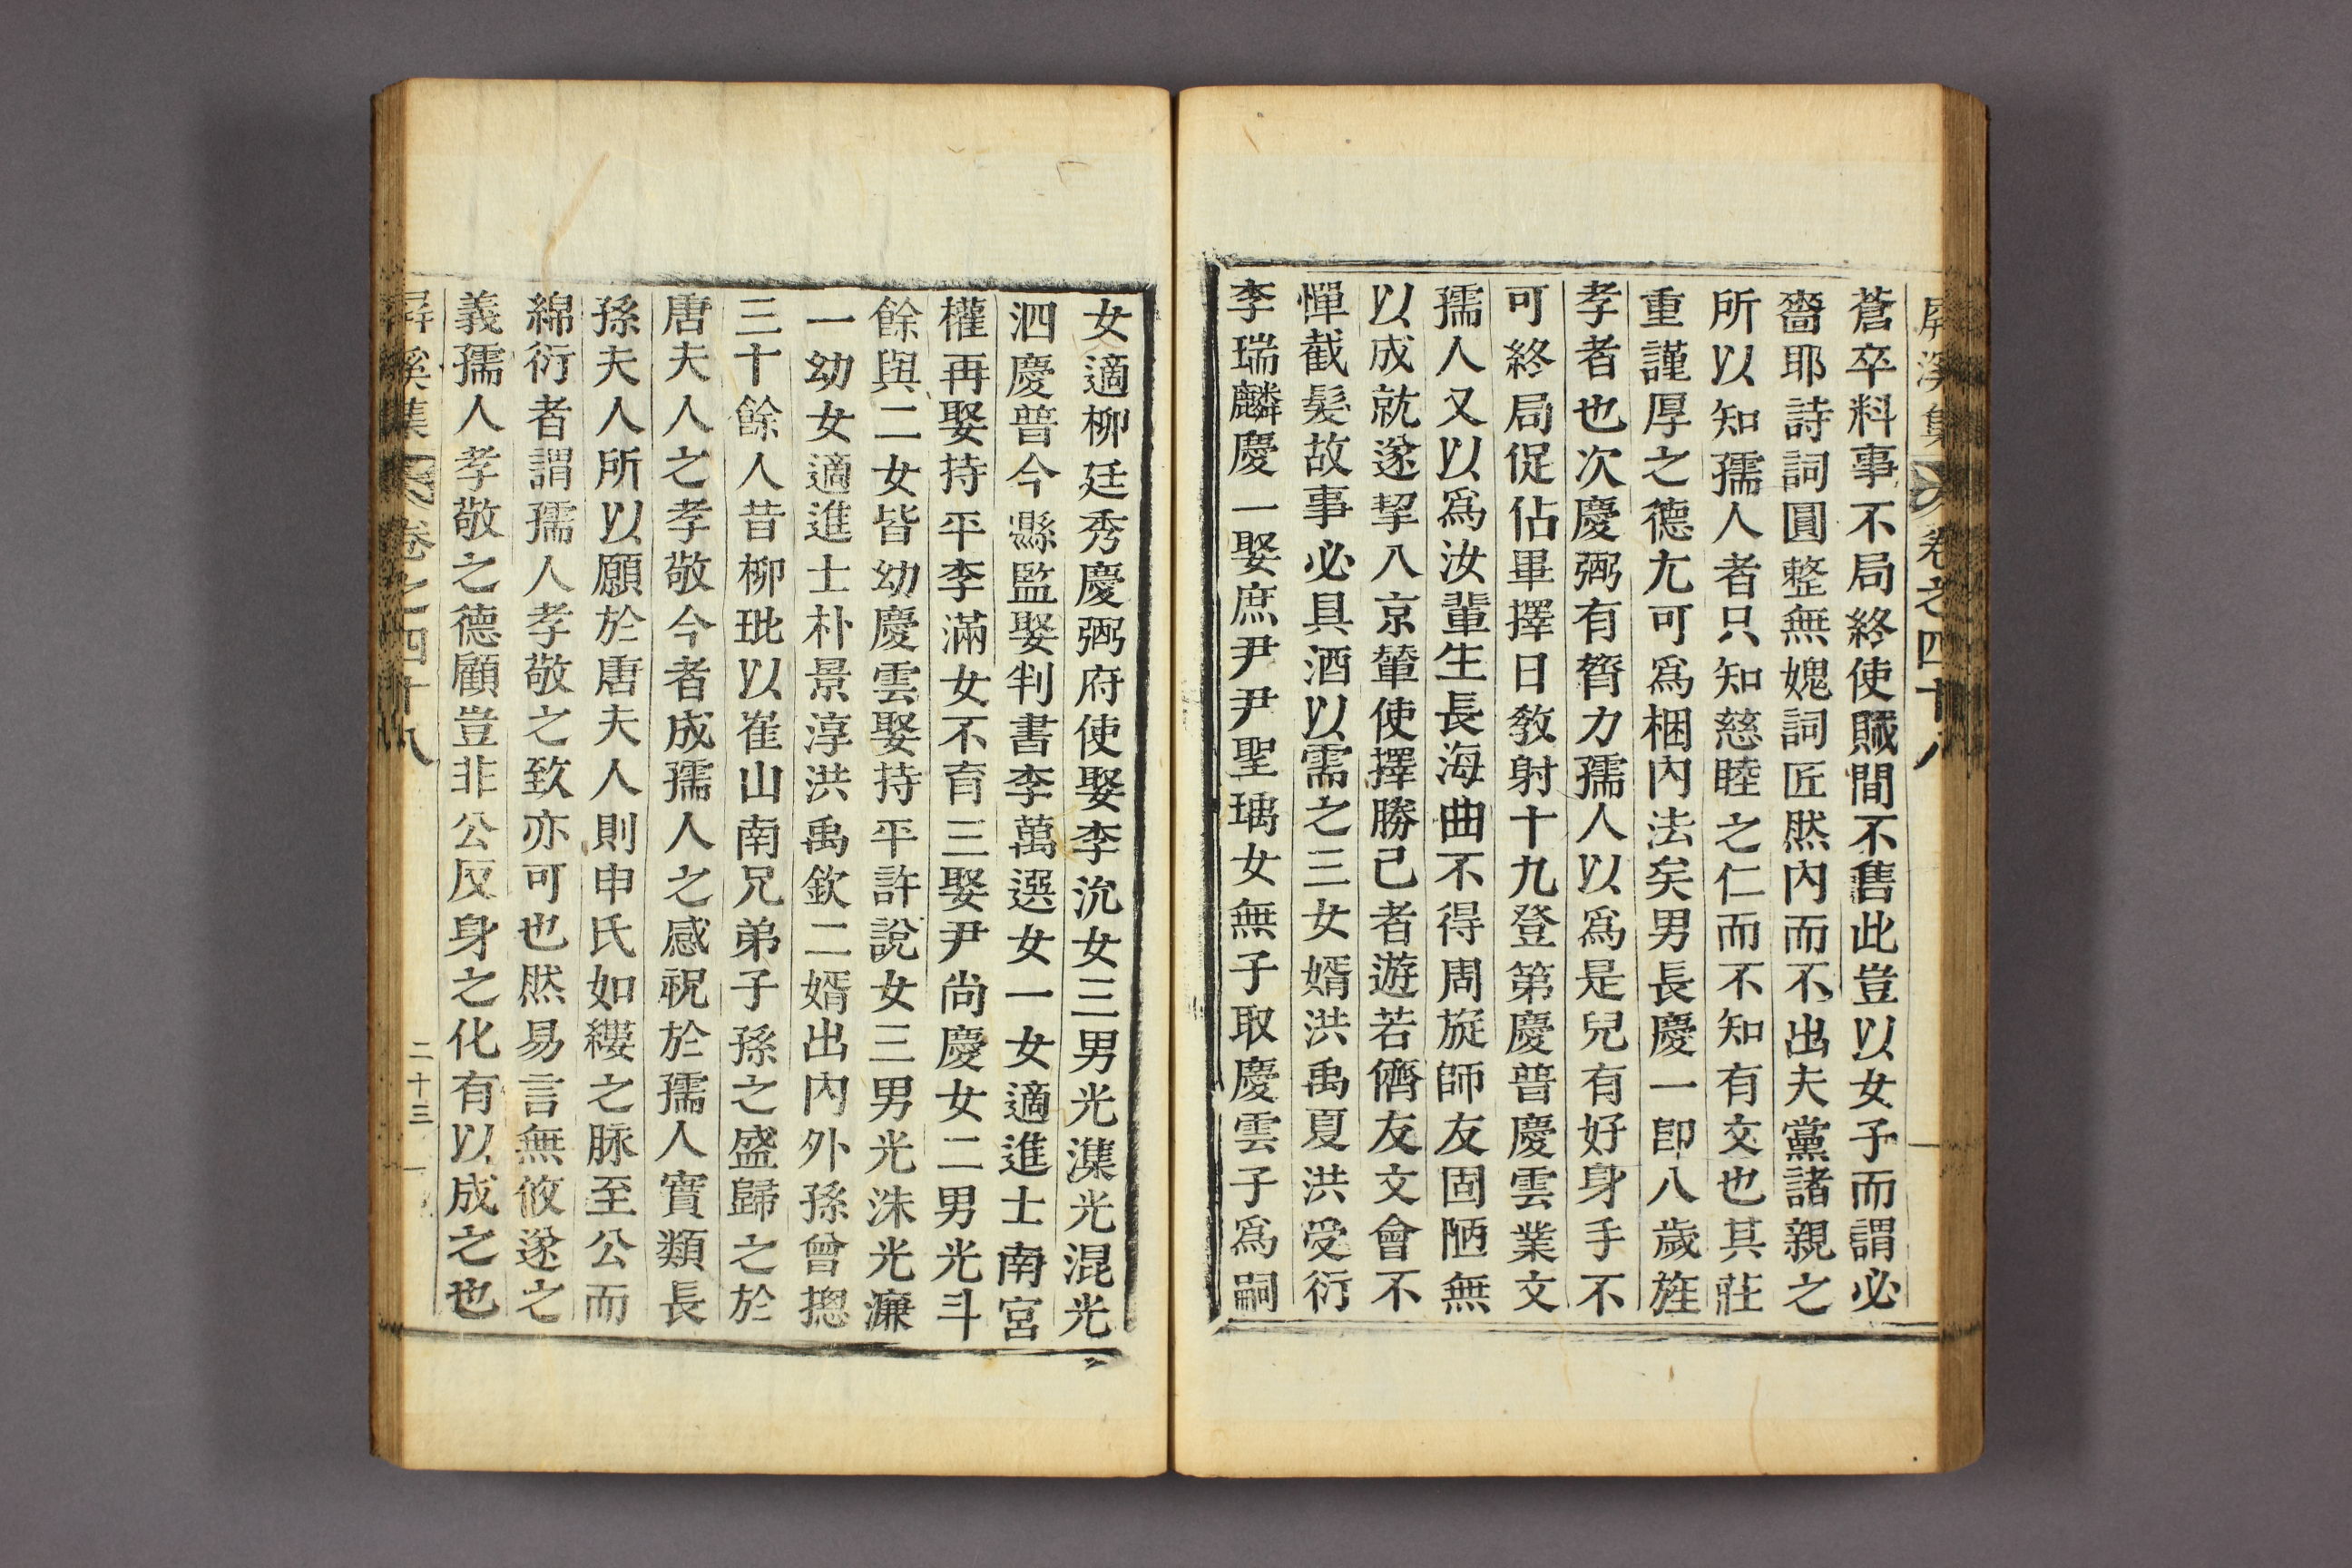 屛溪集 卷之四十八
蒼卒料事不局終使贓間不售此豈以女子而謂必
嗇耶詩詞圓整無媿詞匠然內而不出夫黨諸親之
所以知孺人者只知慈睦之仁而不知有文也其莊
重謹厚之德尤可爲梱內法矣男長慶一卽八歲旌
孝者也次慶弼有膂力孺人以爲是兒有好身手不
可終局促佔畢擇日敎射十九登第慶普慶雲業文
孺人又以爲汝輩生長海曲不得周旋師友固陋無
以成就遂挈入京輦使擇勝己者遊若儕友文會不
憚截髮故事必具酒以需之三女婿洪禹夏洪受衍
李瑞麟慶一娶庶尹尹聖瑀女無子取慶雲子爲嗣
女適柳廷秀慶弼府使娶李沇女三男光潗光混光
泗慶普今縣監娶判書李萬選女一女適進士南宮
權再娶持平李滿女不育三娶尹尙慶女二男光斗
餘與二女皆幼慶雲娶持平許說女三男光洙光濂
一幼女適進士朴景淳洪禹欽二婿出內外孫曾摠
三十餘人昔柳玭以崔山南兄弟子孫之盛歸之於
唐夫人之孝敬今者成孺人之感祝於孺人實類長
孫夫人所以願於唐夫人則申氏如縷之脉至公而
綿衍者謂孺人孝敬之致亦可也然易言無攸遂之
義孺人孝敬之德顧豈非公反身之化有以成之也
屛溪集 卷之四十八 二十三